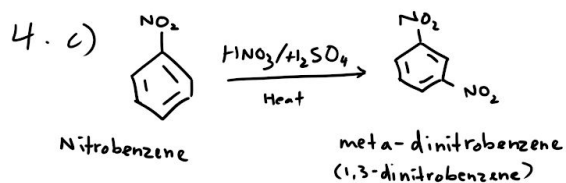 4. c)
NO₂
HNO₃/H₂SO₄
Heat
NO₂
NO₂
Nitrobenzene
meta-dinitrobenzene
(1,3-dinitrobenzene)